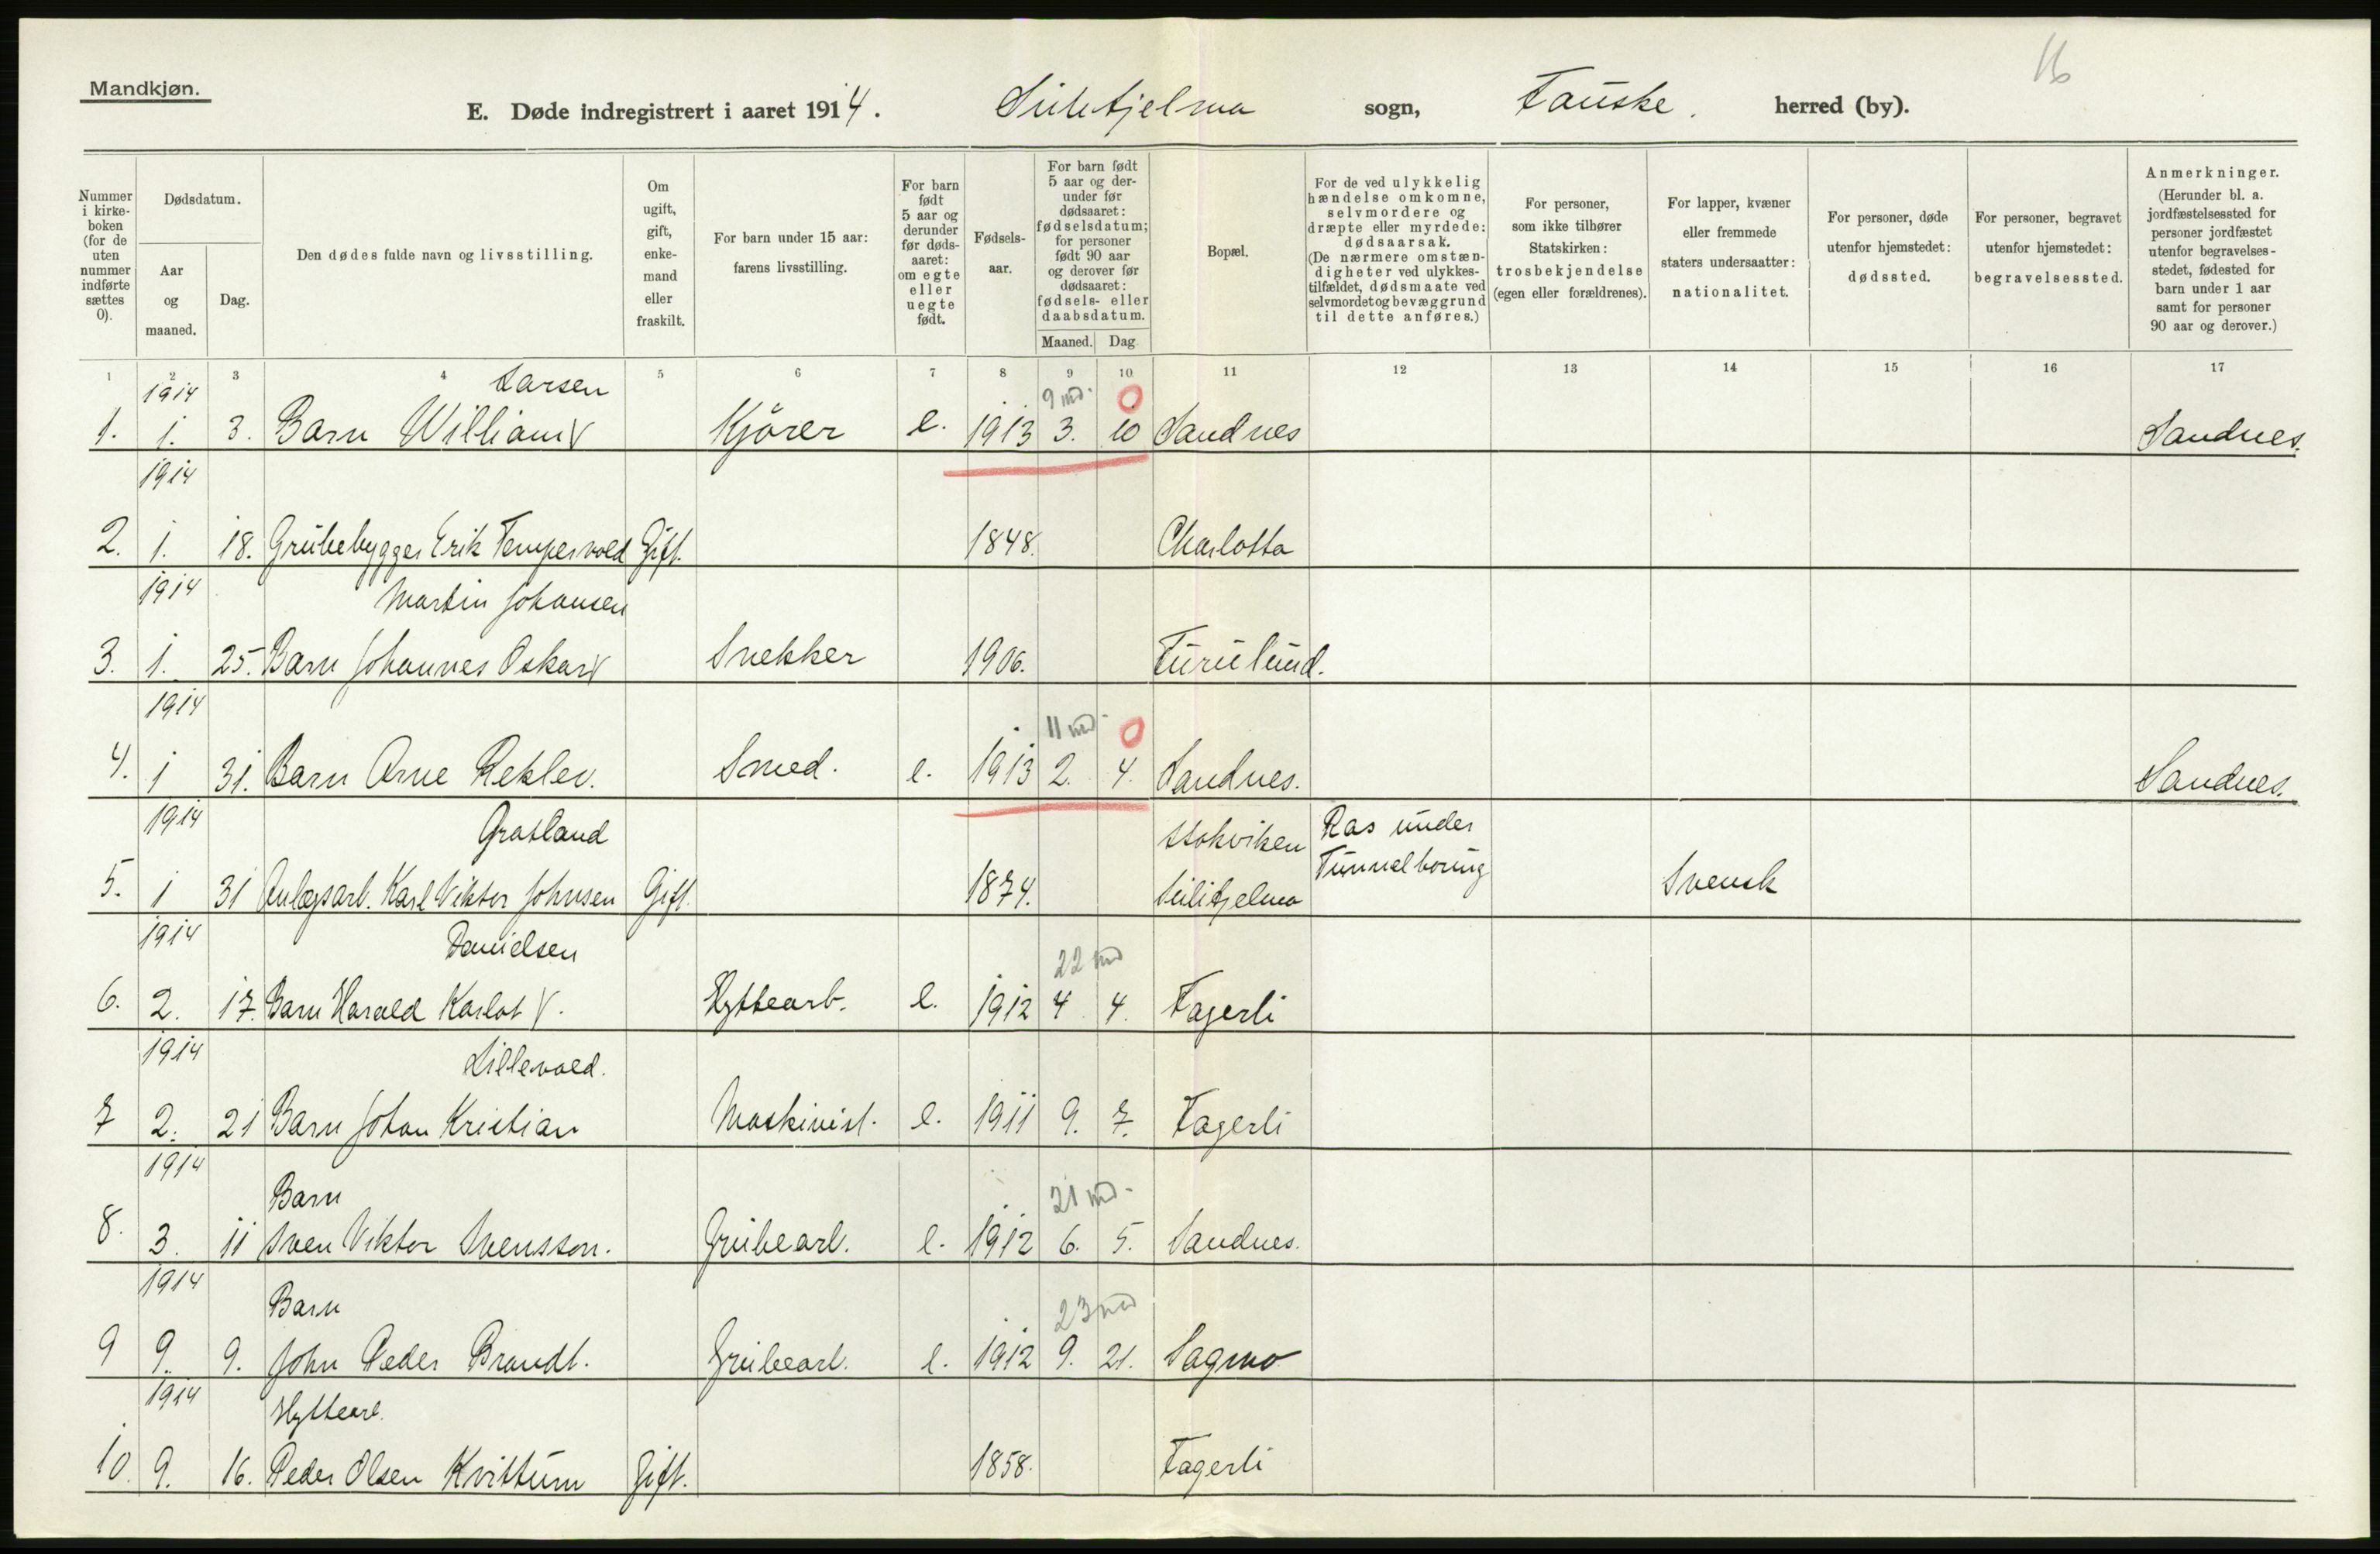 16
Mandkjøn.
E. Døde indregistrert i aaret 1914. Sulitjelma sogn, Fauske. herred (by).
Nummer i kirkeboken (for de uten nummer indførte sættes 0).
Dødsdatum.
Aar og maaned.
Dag.
Den dødes fulde navn og livsstilling.
Om ugift, gift, enkemand eller fraskilt.
For barn under 15 aar: farens livsstilling.
For barn født 5 aar og derunder før dødsaaret: om egte eller uegte født.
Fødselsaar.
For barn født 5 aar og derunder før dødsaaret: fødselsdatum; for personer født 90 aar og derover før dødsaaret: fødsels- eller daabsdatum.
Maaned. Dag
Bopæl.
For de ved ulykkelig hændelse omkomne, selvmordere og dræpte eller myrdede: dødsaarsak. (De nærmere omstændigheter ved ulykkestilfældet, dødsmaate ved selvmordet og bevæggrund til dette anføres.)
For personer, som ikke tilhører Statskirken: trosbekjendelse (egen eller forældrenes).
For lapper, kvæner eller fremmede staters undersaatter: nationalitet.
For personer, døde utenfor hjemstedet: dødssted.
For personer, begravet utenfor hjemstedet: begravelsessted.
Anmerkninger. (Herunder bl. a. jordfæstelsessted for personer jordfæstet utenfor begravelsesstedet, fødested for barn under 1 aar samt for personer 90 aar og derover.)
1 2 3 4 5 6 7 8 9 10 11 12 13 14 15 16 17
1914 Larsen 9 md. 0
1. 1. 3. Barn William V Kjører e. 1913 3. 10 Sandnes Sandnes.
1914
2. 1. 18. Grubebygger Erik Tempervold Gift. 1848. Charlotta
1914 Martin Johansen
3. 1. 25. Barn Johannes Oskar V Snekker 1906. Furulund.
1914 11 md. 0
4. 1 31. Barn Arne Reklev. Smed. e. 1913 2. 4. Sandnes. Sandnes.
1914 Grasland Stokviken Ras under
5. 1 31 Anlegsarb. Karl Viktor Johnsen Gift. 1874. Sulitjelma Tunnelboring Svensk
1914 Danielsen 22 md
6. 2. 17. Barn Harald Karlot V. Hyttearb. e. 1912 4 4. Fagerli
1914 Lillevold.
7 2. 21 Barn Johan Kristian Maskinist. e. 1911 9. 7. Fagerli
1914 Barn 21 md.
8. 3. 11 Sven Viktor Svensson. Grubearb. e. 1912 6. 5. Sandnes.
1914 Barn 23 md
9 9. 9. John Peder Brandt. Grubearb. e. 1912 9. 21. Sagmo
1914 Hyttearb.
10. 9. 16. Peder Olsen Kvittum Gift. 1858. Fagerli